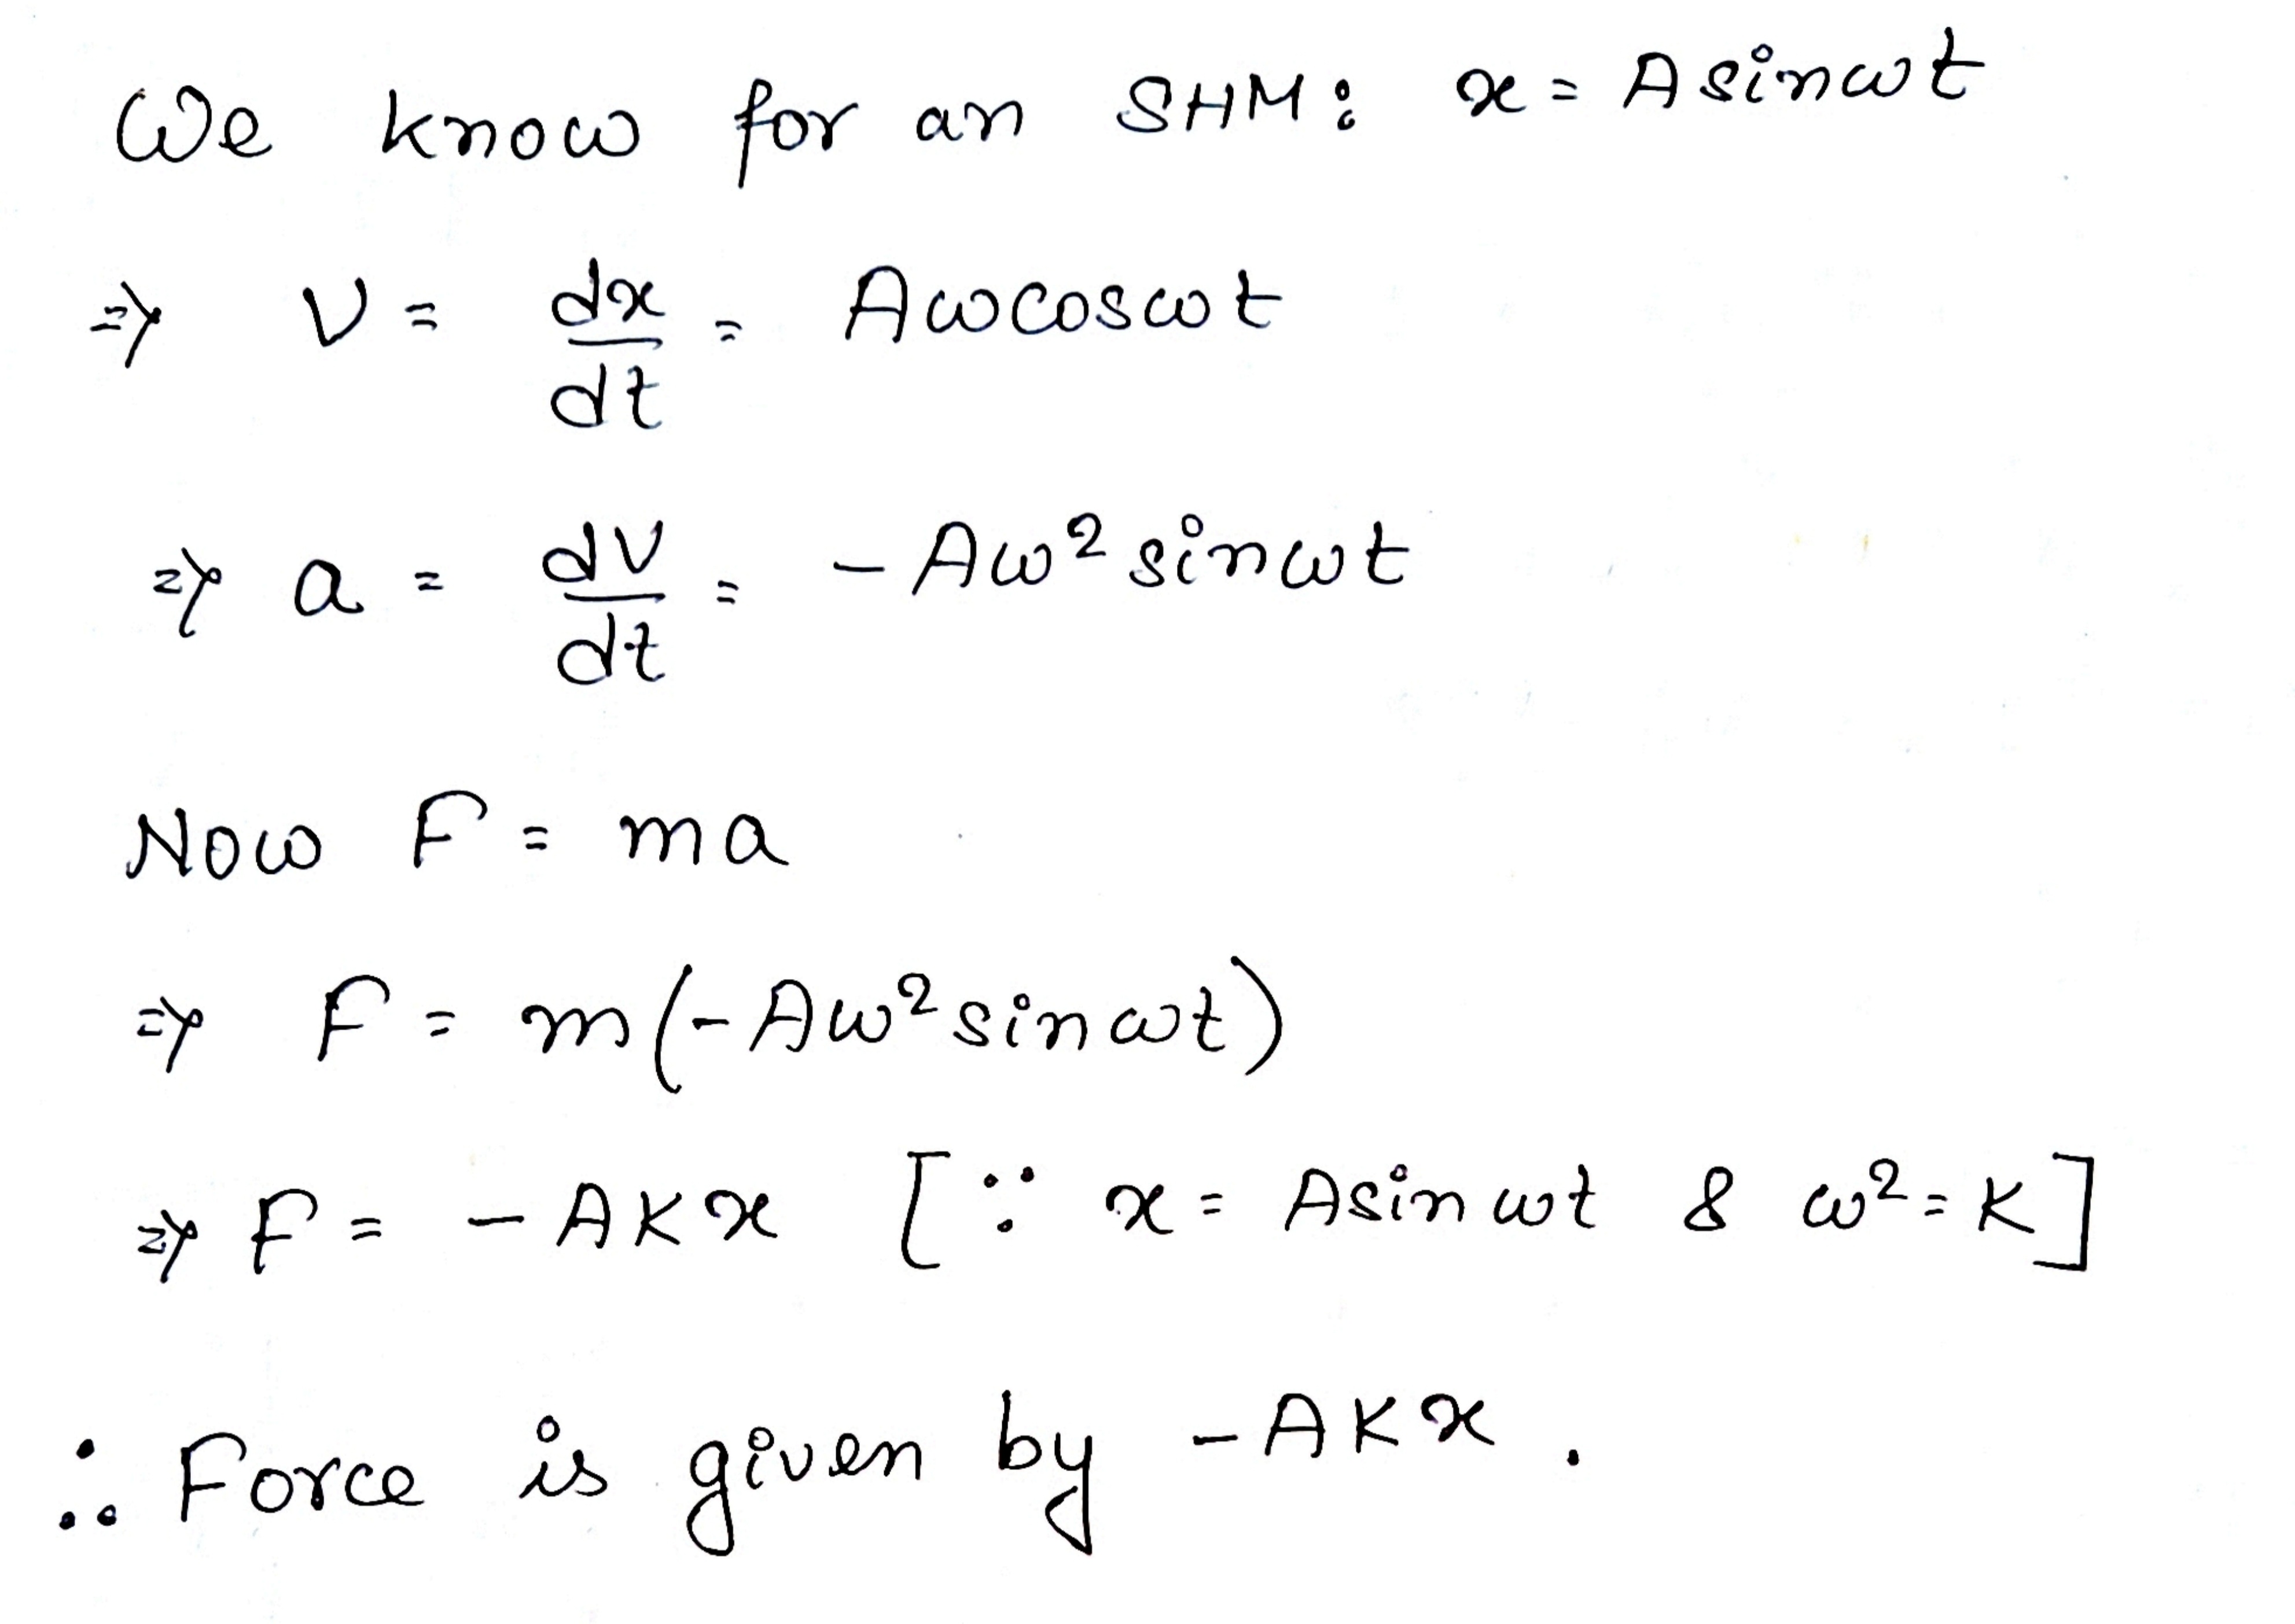 We know for an SHM: x = A sinωt
⇒ V = dx/dt = Aωcosωt
⇒ a = dV/dt = -Aω² sinωt
Now F = ma
⇒ F = m(-Aω² sinωt)
⇒ F = -AKx [∵ x = Asinωt & ω² = K]
∴ Force is given by -AKx.